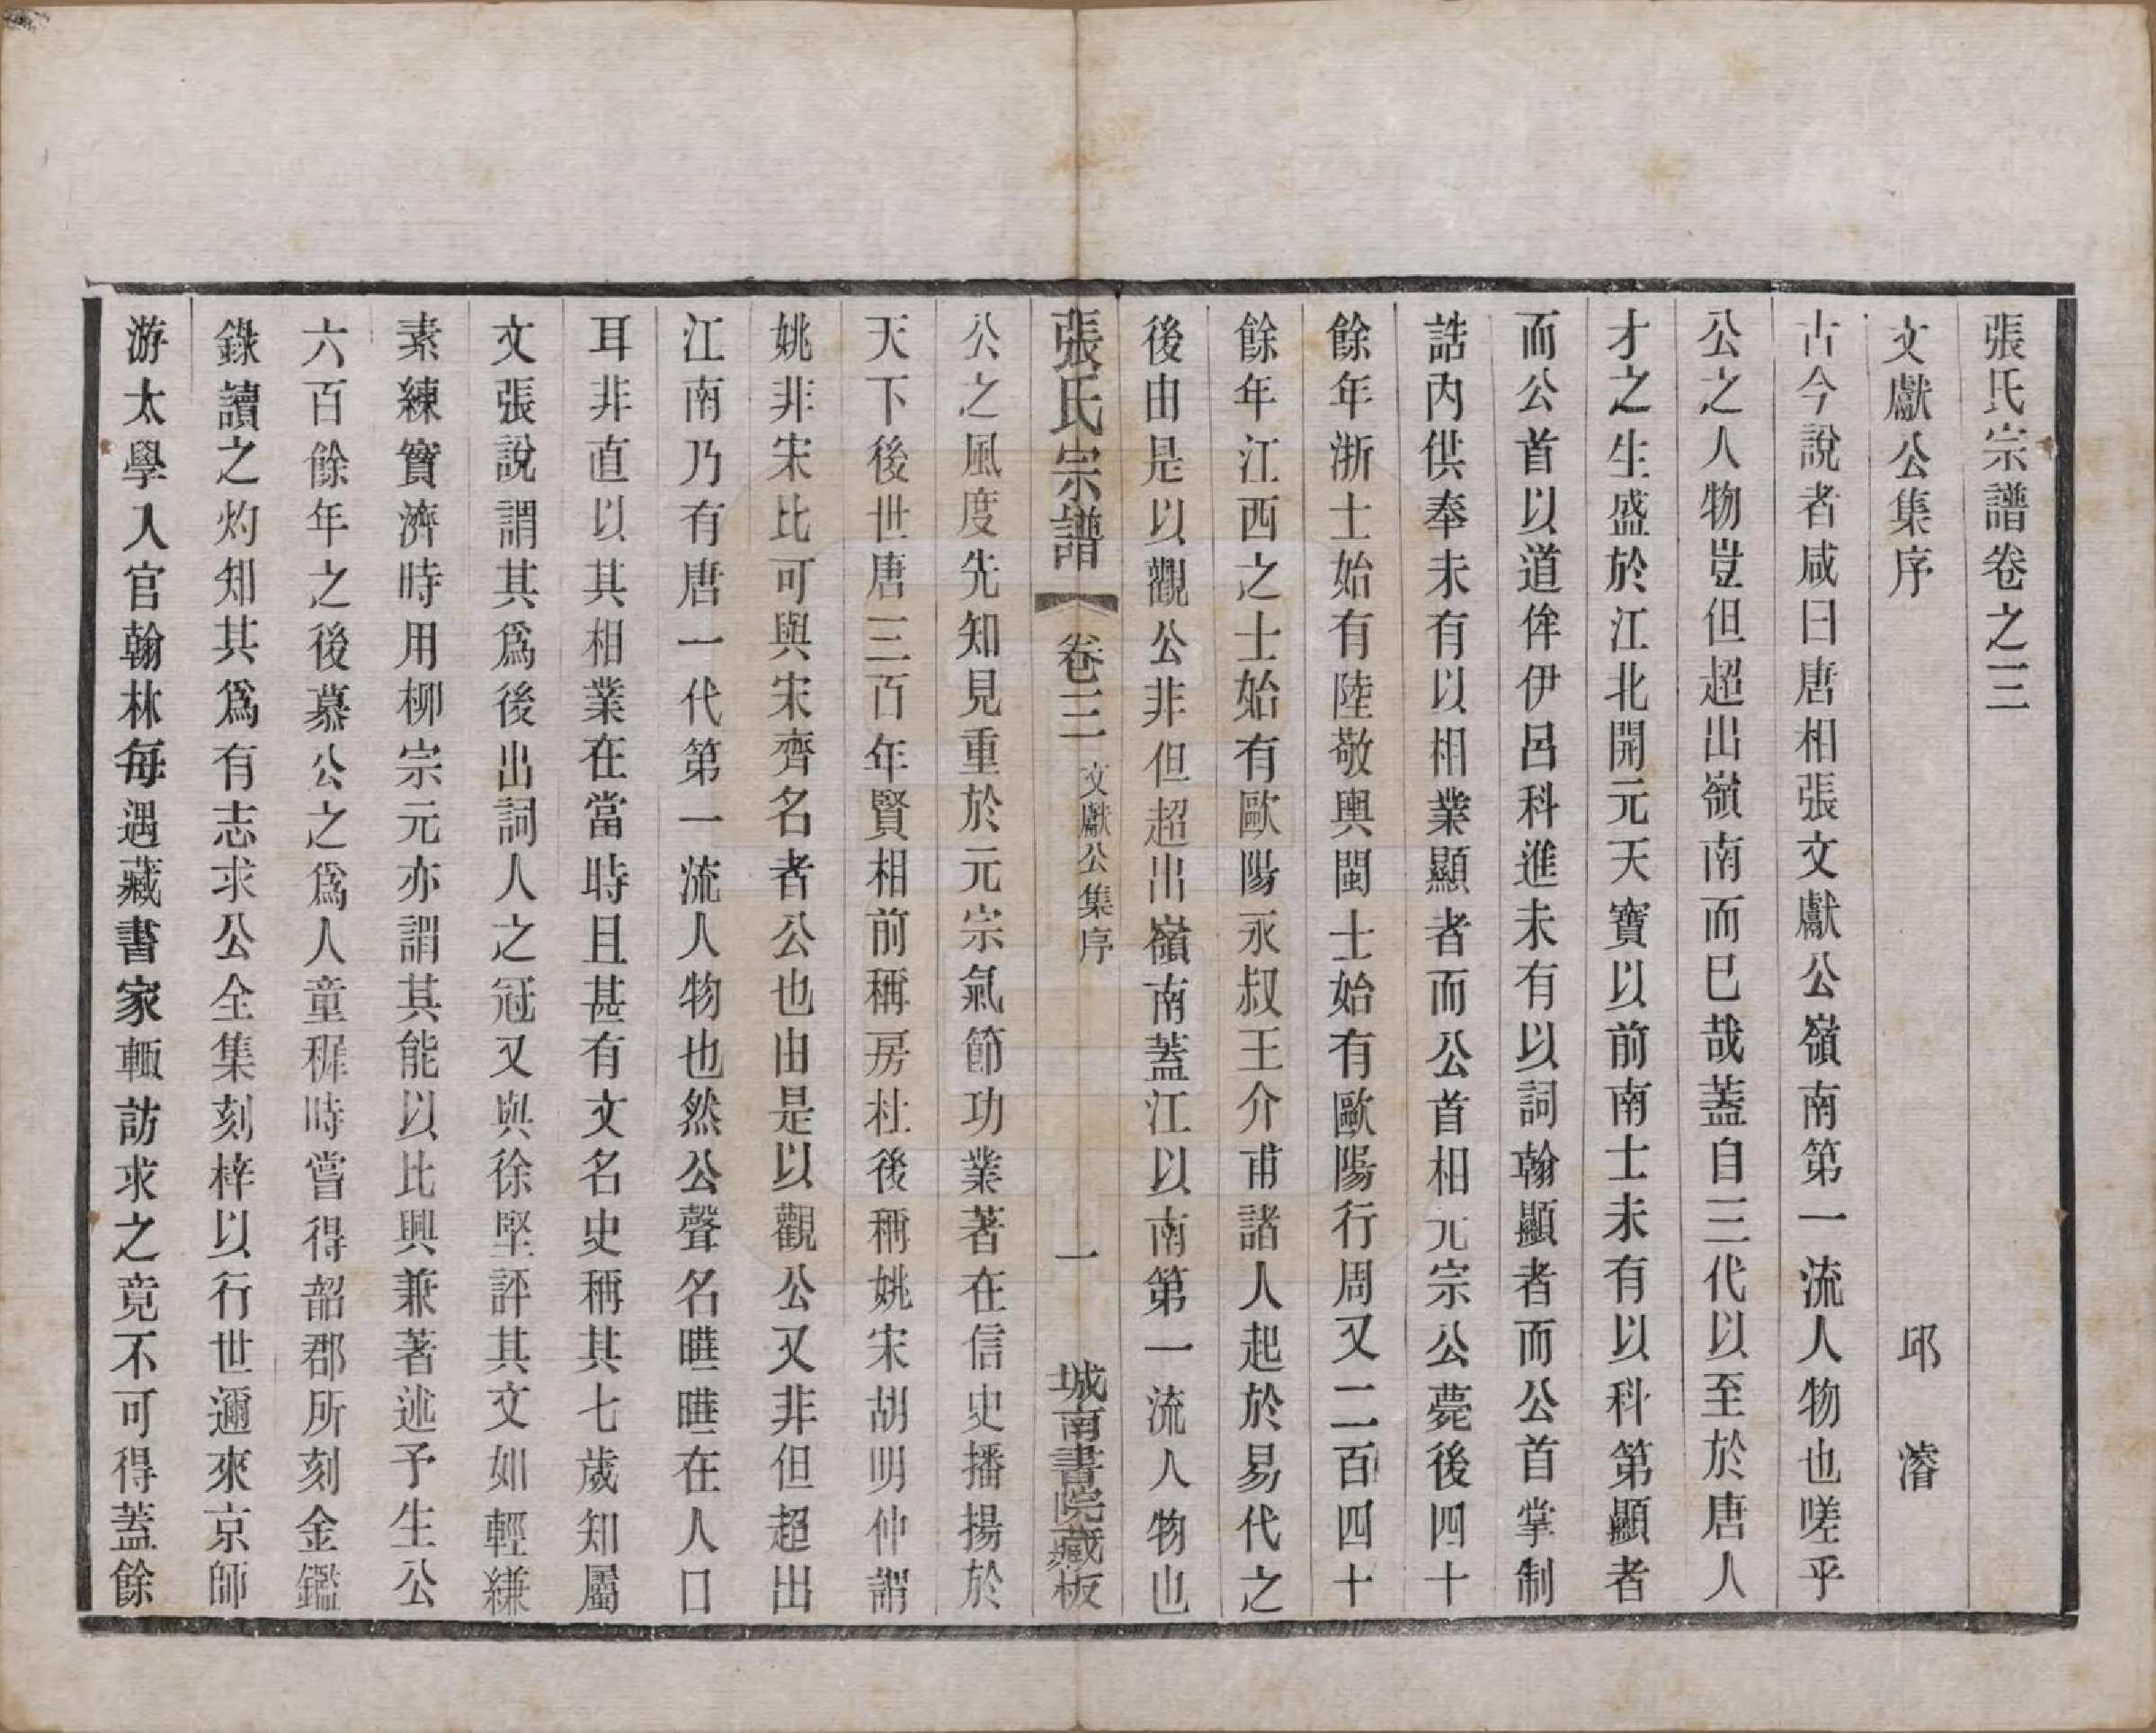 張氏宗譜卷之三
文獻公集序　邱　濬
古今說者咸曰唐相張文獻公嶺南第一流人物也嗟乎
公之人物豈但超出嶺南而巳哉蓋自三代以至於唐人
才之生盛於江北開元天寶以前南士未有以科第顯者
而公首以道侔伊呂科進未有以詞翰顯者而公首掌制
誥內供奉未有以相業顯者而公首相元宗公薨後四十
餘年浙士始有陸敬輿閩士始有歐陽行周又二百四十
餘年江西之士始有歐陽永叔王介甫諸人起於易代之
後由是以觀公非但超出嶺南蓋江以南第一流人物也
張氏宗譜　卷三　文獻公集序　一　城南書院藏板
公之風度先知見重於元宗氣節功業著在信史播揚於
天下後世唐三百年賢相前稱房杜後稱姚宋胡明仲謂
姚非宋比可與宋齊名者公也由是以觀公又非但超出
江南乃有唐一代第一流人物也然公聲名曄曄在人口
耳非直以其相業在當時且甚有文名史稱其七歲知屬
文張說謂其爲後出詞人之冠又與徐堅評其文如輕縑
素練實濟時用柳宗元亦謂其能以比興兼著述予生公
六百餘年之後慕公之爲人童穉時嘗得韶郡所刻金鑑
錄讀之灼知其爲有志求公全集刻梓以行世邇來京師
游太學入官翰林每遇藏書家輒訪求之竟不可得蓋餘